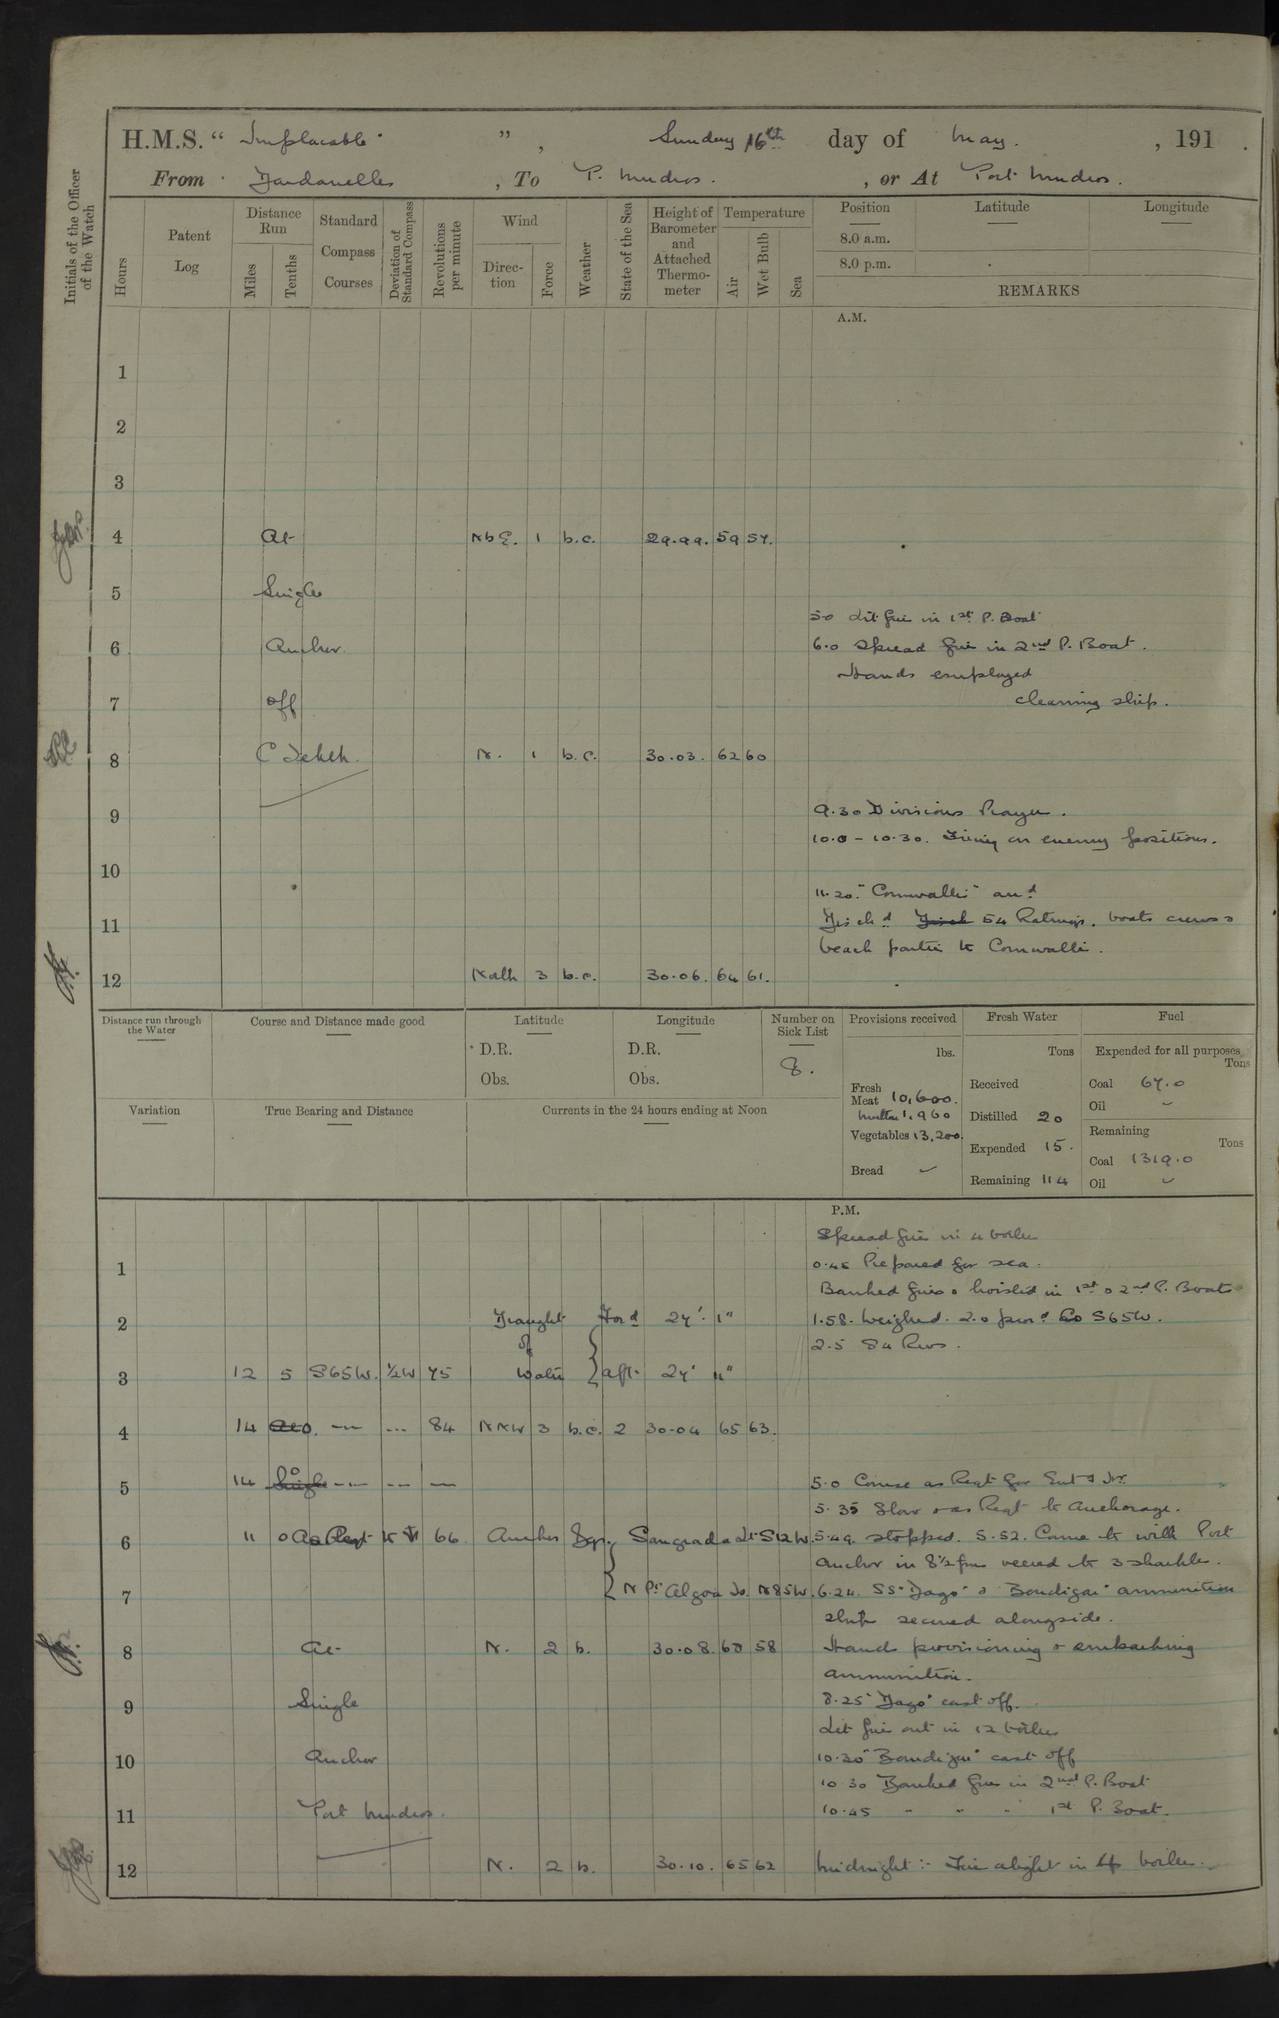 H.M.S. " Implacable " , Sunday 16th day of May. , 191 .
From Dardanelles , To P. Mudros. , or At Port Mudros.
Initials of the Officer of the Watch
Hours
Patent Log
Distance Run
Miles
Tenths
Standard Compass Courses
Deviation of Standard Compass
Revolutions per minute
Wind
Direction
Force
Weather
State of the Sea
Height of Barometer and Attached Thermometer
Temperature
Air
Wet Bulb
Sea
Position
8.0 a.m.
8.0 p.m.
Latitude
Longitude
REMARKS
A.M.
1
2
3
4 At NbE. 1 b.c. 29.99. 59 57.
5 Single
5.0 Lit fires in 1st P. Boat
6 Anchor 6.0 Spread fires in 2nd P. Boat.
Hands employed
7 off cleaning ship.
8 C Tekeh. N. 1 b.c. 30.03. 62 60
9 9.30 Divisions Prayers.
10.0 - 10.30. Firing on enemy positions.
10
11.20. "Cornwallis" and
11 Disch'd Disch 54 Ratings, boats crews &
beach parties to Cornwallis.
12 North 3 b.c. 30.06. 64 61.
Distance run through the Water
Course and Distance made good
Latitude
D.R.
Obs.
Longitude
D.R.
Obs.
Number on Sick List
8.
Provisions received
lbs.
Fresh Meat 10,600.
Mutton 1,960
Vegetables 13,200.
Bread ✓
Fresh Water
Tons
Received
Distilled 20
Expended 15.
Remaining 114
Fuel
Expended for all purposes
Tons
Coal 67.0
Oil ✓
Remaining
Tons
Coal 1319.0
Oil ✓
Variation
True Bearing and Distance
Currents in the 24 hours ending at Noon
P.M.
Spread fires in 4 boilers
1 0.45 Prepared for sea.
Banked fires & hoisted in 1st & 2nd P. Boats
2 Draught of Water { For'd 27'. 1" 1.58. Weighed. 2.0 proc'd Co S65W.
2.5 84 Revs.
3 12 5 S65W. ½W 75 aft. 27' 4"
4 14 0. -- --- 84 NNW 3 b.c. 2 30.04 65 63.
5 14 0 -- -- -- 5.0 Course as Reqt for Ent & Dr.
5.35 Slow & as Reqt to Anchorage.
6 11 0 As Reqt 66 Anchor Bgs. { Sangrada Lt S12W. 5.49. stopped. 5.52. Came to with Port
anchor in 8½ fms veered to 3 shackles.
7 N Pt Algoa Is. N85W. 6.24. SS "Dago" & "Bondigar" ammunition
ships secured alongside.
8 At N. 2 b. 30.08. 60 58 Hands provisioning & embarking
ammunition.
9 Single 8.25 "Dago" cast off.
Let fires out in 12 boilers
10 Anchor 10.20 "Bondigar" cast off
10.30 Banked fires in 2nd P. Boat
11 Port Mudros. 10.45 " " " 1st P. Boat.
12 N. 2 b. 30.10. 65 62 Midnight :- Fires alight in 4 boilers.